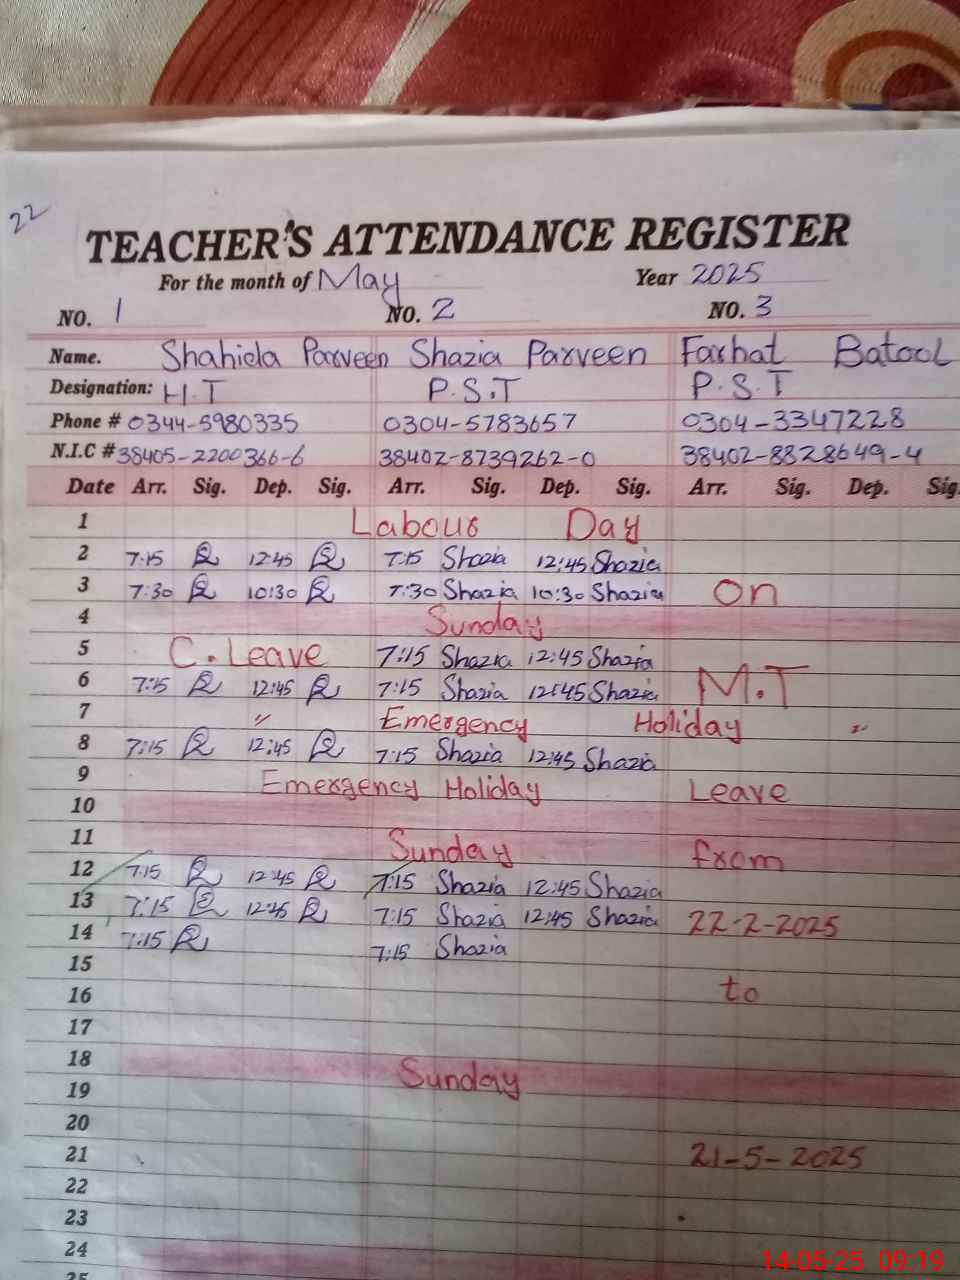 22
TEACHER'S ATTENDANCE REGISTER
For the month of May Year 2025
NO. 1 NO. 2 NO. 3
Name. Shahida Parveen Shazia Parveen Farhat Batool
Designation: H.T P.S.T P.S.T
Phone # 0344-5980335 0304-5783657 0304-3347228
N.I.C # 38405-2200366-6 38402-8739262-0 38402-8828649-4
Date Arr. Sig. Dep. Sig. Arr. Sig. Dep. Sig. Arr. Sig. Dep. Sig.
1 Labour Day
2 7:15 12:45 7:15 Shazia 12:45 Shazia
3 7:30 10:30 7:30 Shazia 10:30 Shazia On
4 Sunday
5 C. Leave 7:15 Shazia 12:45 Shazia
6 7:15 12:45 7:15 Shazia 12:45 Shazia M.T
7 〃 Emergency Holiday 〃
8 7:15 12:45 7:15 Shazia 12:45 Shazia
9 Emergency Holiday Leave
10
11 Sunday from
12 7:15 12:45 7:15 Shazia 12:45 Shazia
13 7:15 12:45 7:15 Shazia 12:45 Shazia 22-2-2025
14 7:15 7:15 Shazia
15
16 to
17
18 Sunday
19
20
21 21-5-2025
22
23
24
25
14-05-25 09:19